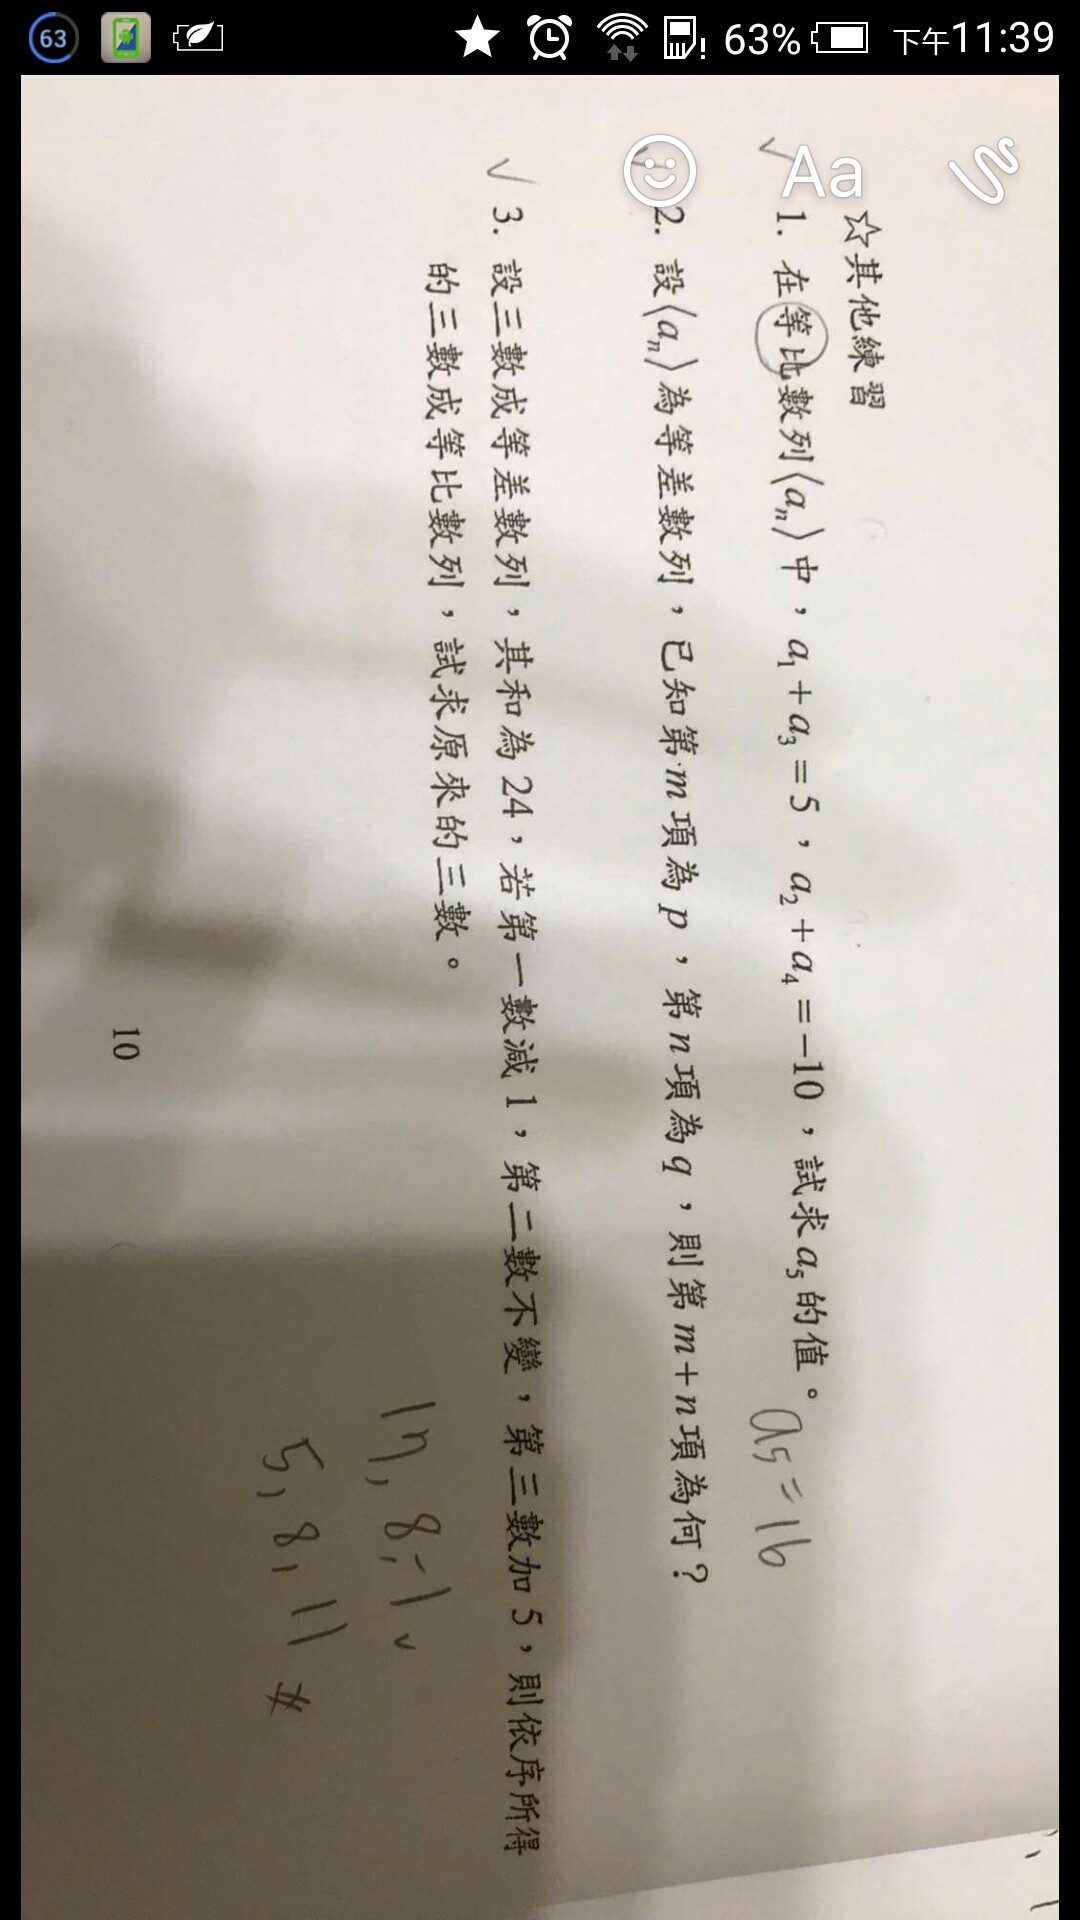 63
63%
下午11:39
Aa
☆其他練習
1. 在等比數列⟨a_n⟩中，a_1+a_3=5，a_2+a_4=-10，試求a_5的值。
a5=16
2. 設⟨a_n⟩為等差數列，已知第m項為p，第n項為q，則第m+n項為何？
3. 設三數成等差數列，其和為24，若第一數減1，第二數不變，第三數加5，則依序所得
的三數成等比數列，試求原來的三數。
17, 8, -1
5, 8, 11 #
10